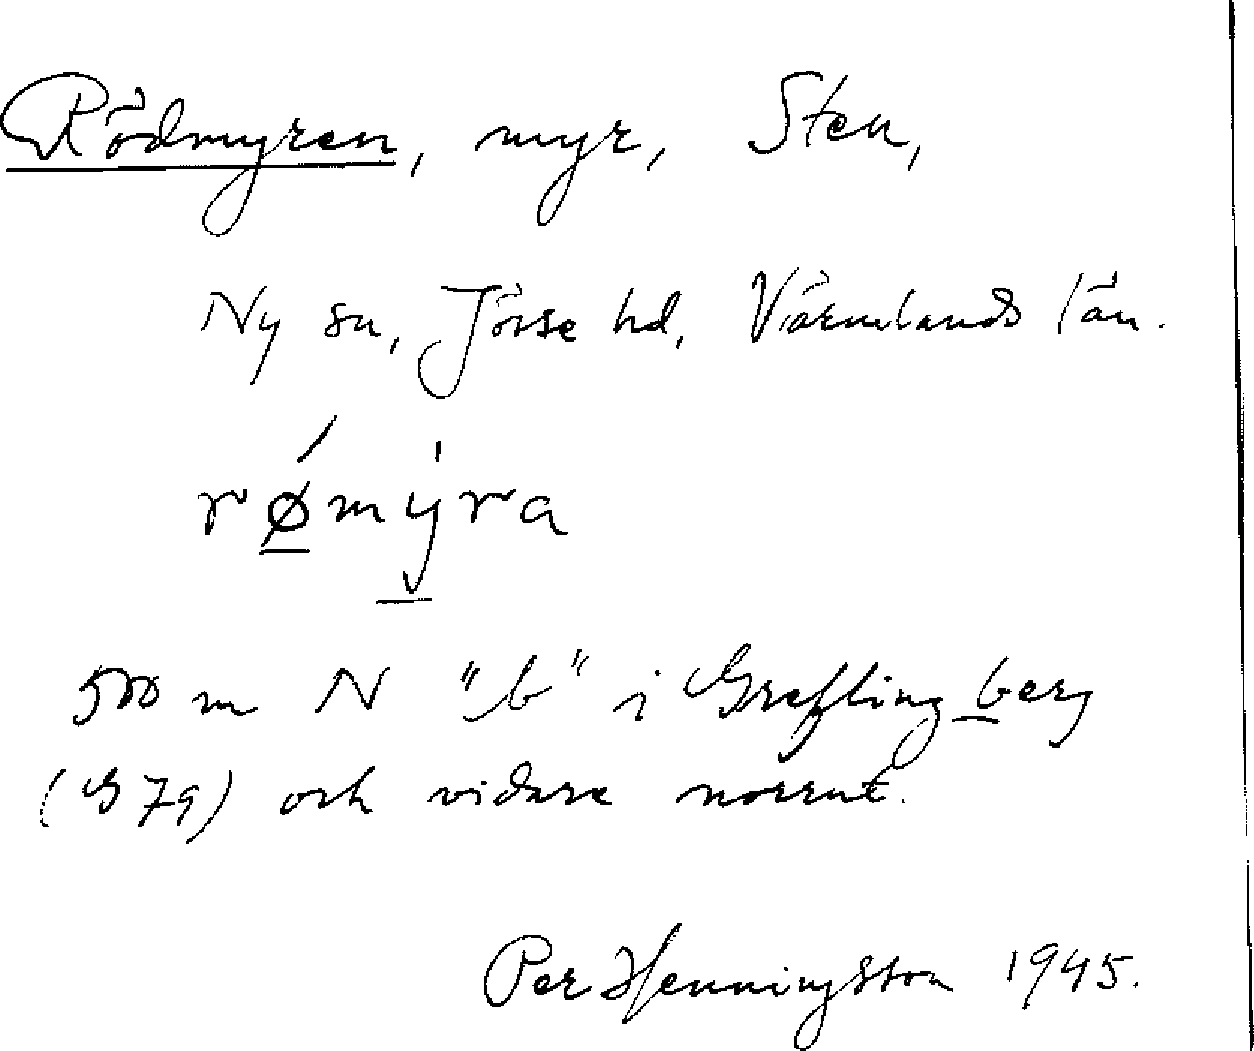 Rödmyren, myr, Sten,
Ny sn, Jösse hd, Värmlands län.
rǿmýra
500 m N "b" i Greflingberg
(G 79) och vidare norrut.
Per Henningsson 1945.